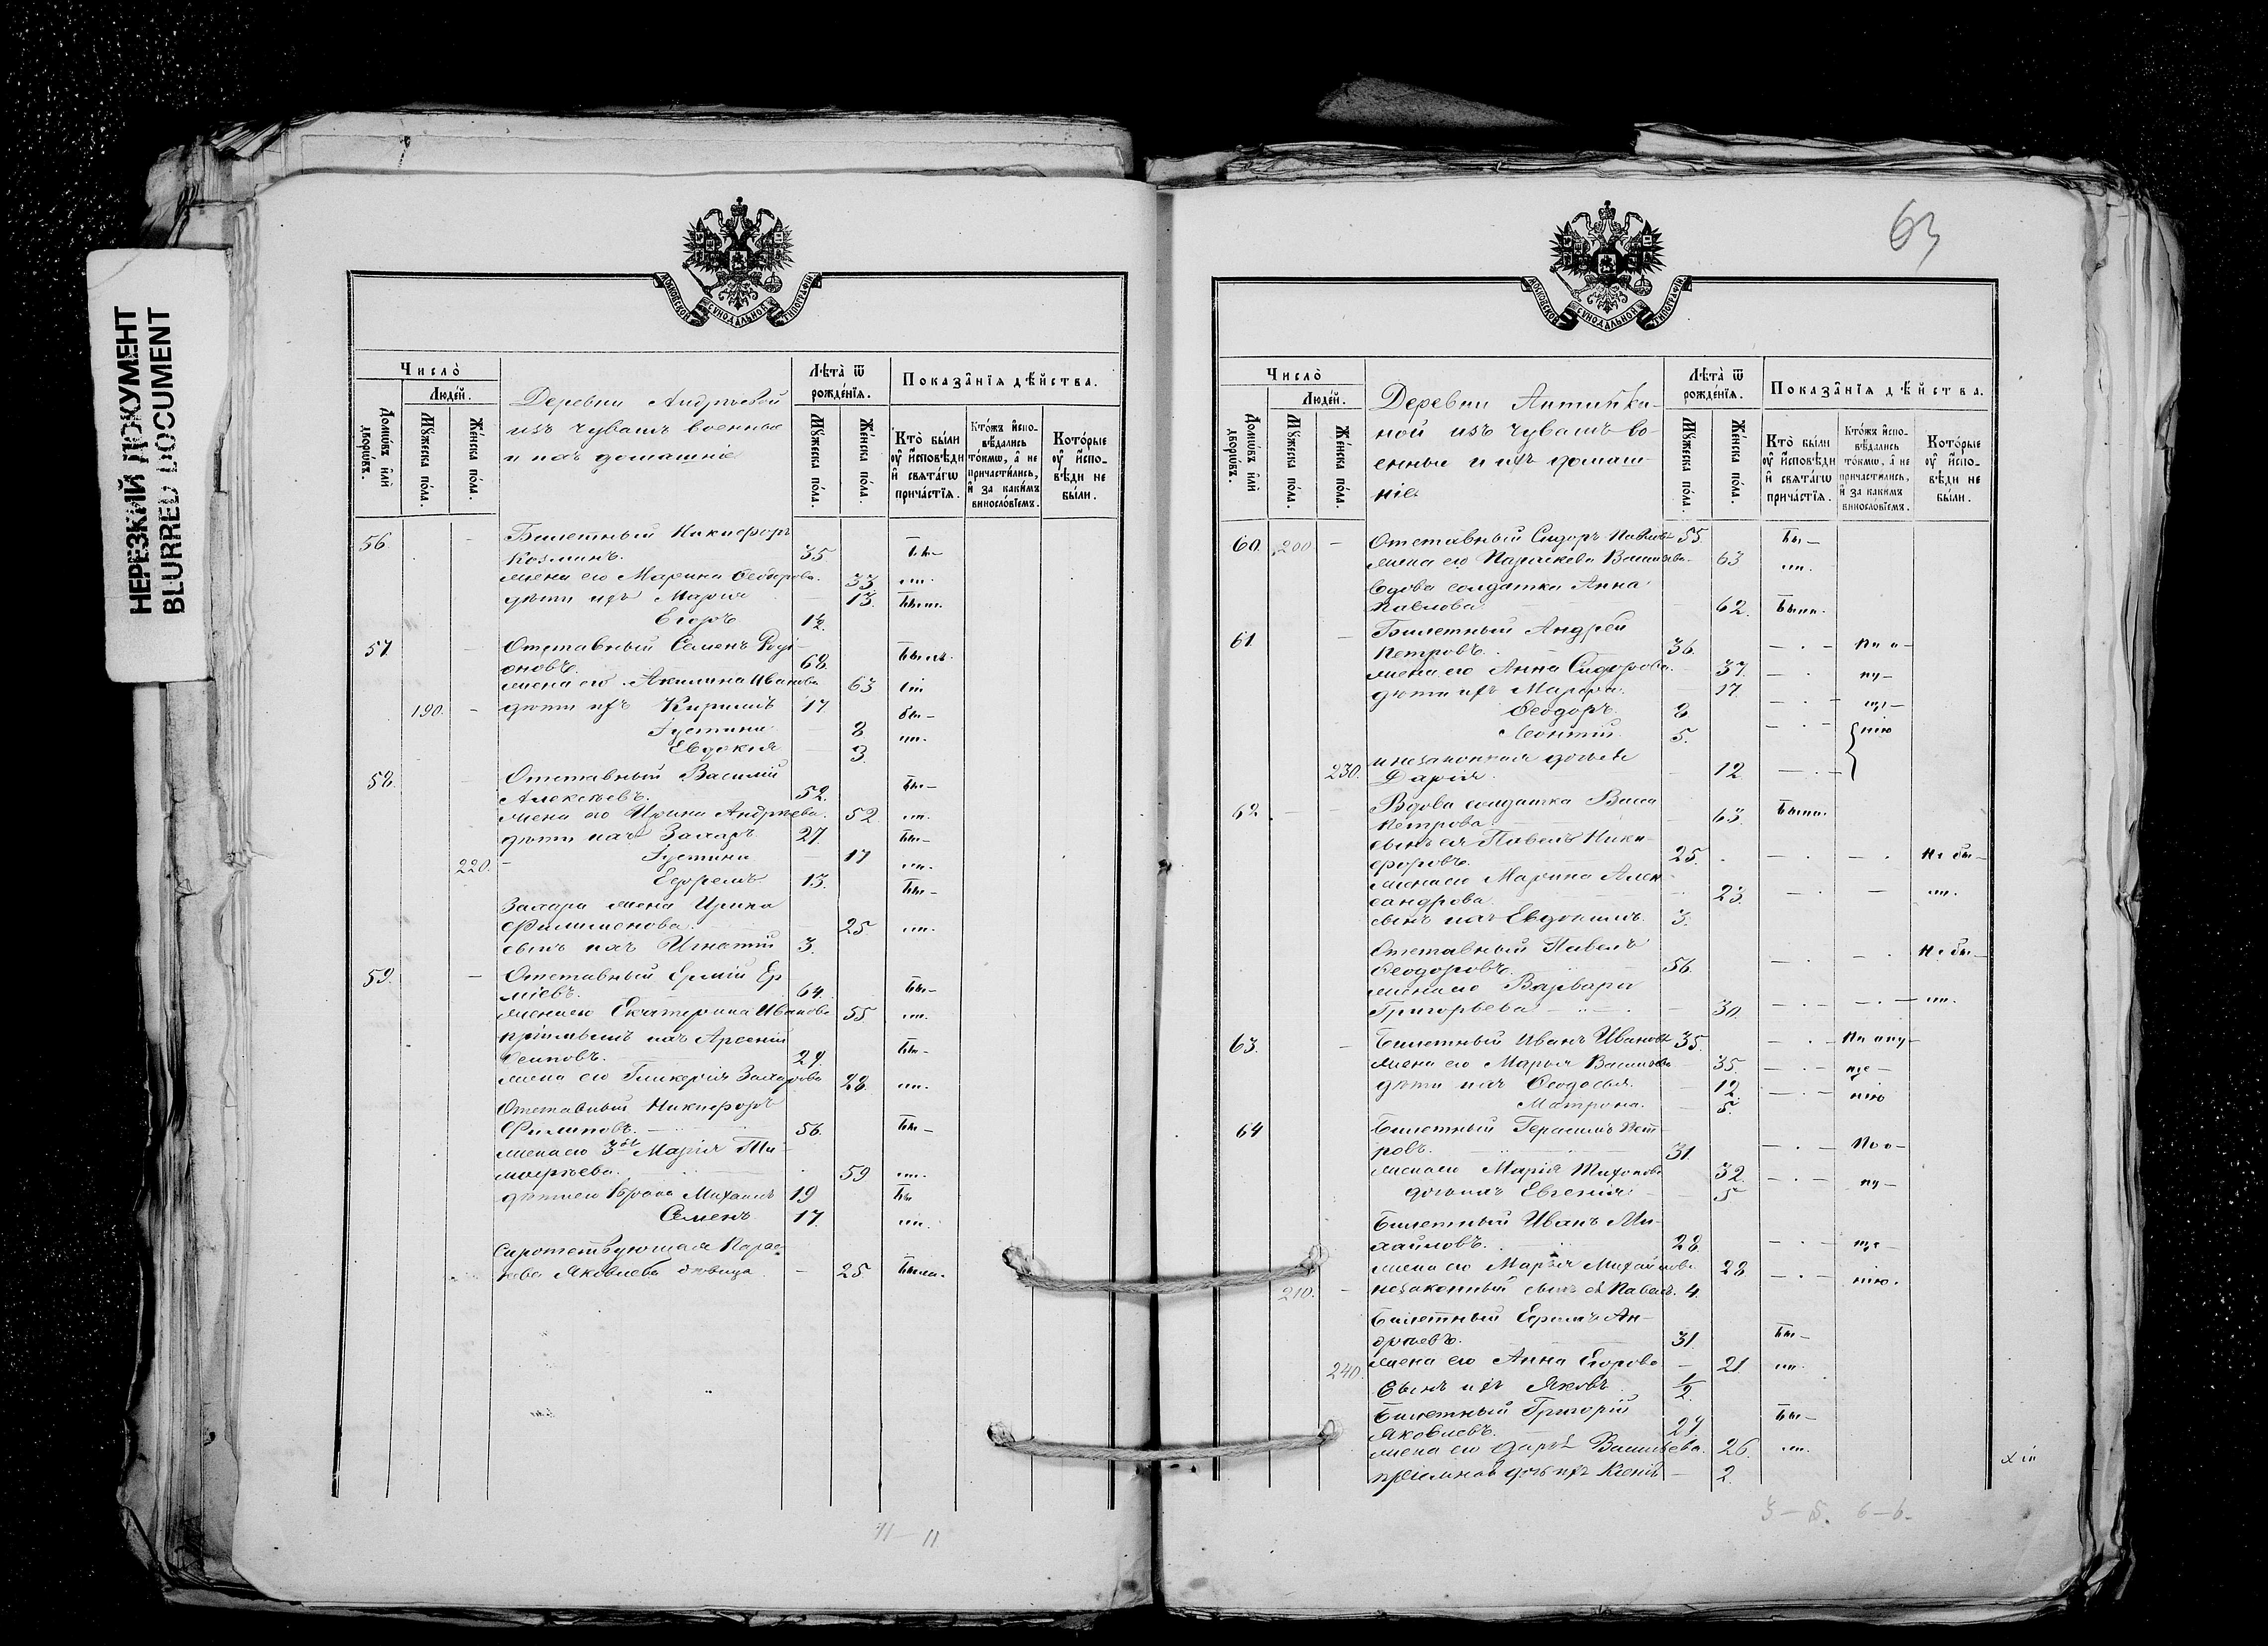 НЕРЕЗКИЙ ДОКУМЕНТ
BLURRED DOCUMENT
МОСКОВСКОЙ СѴНОДАЛЬНОЙ ТИПОГРАФІИ
Число̀
Людей.
Домѡвъ и҆лѝ дворѡвъ.
Мꙋжеска по́ла.
Же́нска по́ла.
Деревни Андрѣевой
изъ чувашъ военные
и ихъ домашніе
Лѣта̀ ѿ рожде́нїѧ.
Мꙋжеска по́ла.
Же́нска по́ла.
Показа̑нїѧ дѣ́йства.
Кто̀ бы́ли ᲂу҆ и҆сповѣди и҆ свѧта́гѡ прича́стїѧ.
Кто́жъ и҆спо-вѣдались то́кмѡ, а҆ не причасти́лись, и҆ за каки́мъ винослові́емъ.
Кото́рые ᲂу҆ и҆спо-вѣди не бы́ли.
56. Билетный Никифоръ
Козминъ. 35 бы-
жена его Марина Ѳеодорова. 33 ли.
дѣти ихъ Марія 13. были.
Егоръ 12.
57. Отставный Семенъ Роди-
оновъ. 68.
жена его Акилина Иванова 63
190. дѣти ихъ Кириллъ 17. бы-
Іустина 8 ли.
Евдокія 3.
58. Отставный Василій
Алексѣевъ. 52. бы-
жена его Ирина Андрѣева. 52 ли.
дѣти ихъ Захаръ 27. бы-
220. Іустина 17 ли.
Ефремъ 13. бы-
Захара жена Ирина
Филимонова. 25. ли.
сынъ ихъ Игнатій 3.
59. Отставный Ермій Ер
міевъ. 64. бы-
жена его Екатерина Иванова 55 ли.
пріемышъ ихъ Арсеній
Осиповъ. 29. бы-
жена его Гликерія Захарова 28. ли.
Отставный Никифоръ
Филиповъ. 56. бы-
жена его 3я Марія Ти-
моѳеева. 59 ли.
дѣти его 1го брака Михаилъ 19 бы
Семенъ 17. ли.
Сиротствующая Парас-
кева Яковлева дѣвица 25 были.
11 — 11
63
МОСКОВСКОЙ СѴНОДАЛЬНОЙ ТИПОГРАФІИ
Число̀
Людей.
Домѡвъ и҆лѝ дворѡвъ.
Мꙋжеска по́ла.
Же́нска по́ла.
Деревни Антипки-
ной изъ чувашъ во-
енные и ихъ домаш-
ніе
Лѣта̀ ѿ рожде́нїѧ.
Мꙋжеска по́ла.
Же́нска по́ла.
Показа̑нїѧ дѣ́йства.
Кто̀ бы́ли ᲂу҆ и҆сповѣди и҆ свѧта́гѡ прича́стїѧ.
Кто́жъ и҆спо-вѣдались то́кмѡ, а҆ не причасти́лись, и҆ за каки́мъ винослові́емъ.
Кото́рые ᲂу҆ и҆спо-вѣди не бы́ли.
60. 200 Отставный Сидоръ Павловъ 55 бы-
жена его Параскева Васильева 63 ли.
вдова солдатка Анна
Павлова. 62. были.
61. Билетный Андрей
Петровъ. 36. По о-
жена его Анна Сидорова. 37. пу-
дѣти ихъ Марфа. 17. ще-
Ѳеодоръ 8 нію
Леонтій 5.
незаконная дочь
230. Дарія. 12
62. Вдова солдатка Васса
Петрова. 63. были.
сынъ ея Павелъ Ники-
форовъ. 25. Не бы-
жена его Марина Алек-
сандрова. 23. ли.
сынъ ихъ Евдокимъ. 3.
Отставный Павелъ
Ѳеодоровъ. 56. Не бы-
жена его Варвара
Григорьева 30. ли.
63. Билетный Иванъ Ивановъ 35. По опу-
жена его Марья Васильева 35. ще-
дѣти ихъ Ѳеодосья 12. нію
Матрона. 5.
64 Билетный Герасимъ Пет-
ровъ. 31. По о-
жена его Марія Тихонова 32. пу-
дочь ихъ Евгенія 5
Билетный Иванъ Ми-
хайловъ. 28. ще-
жена его Марья Михайлова 28
210. незаконный сынъ ея Павелъ. 4. нію.
Билетный Ефимъ Ан-
дреевъ. 31. бы-
240. жена его Анна Егорова 21. ли.
Сынъ ихъ Яковъ 1/2.
Билетный Григорій
Яковлевъ. 29. бы-
жена его Дарья Васильева. 26. ли.
пріемная дочь ихъ 2.
3 — 5. 6 — 6.